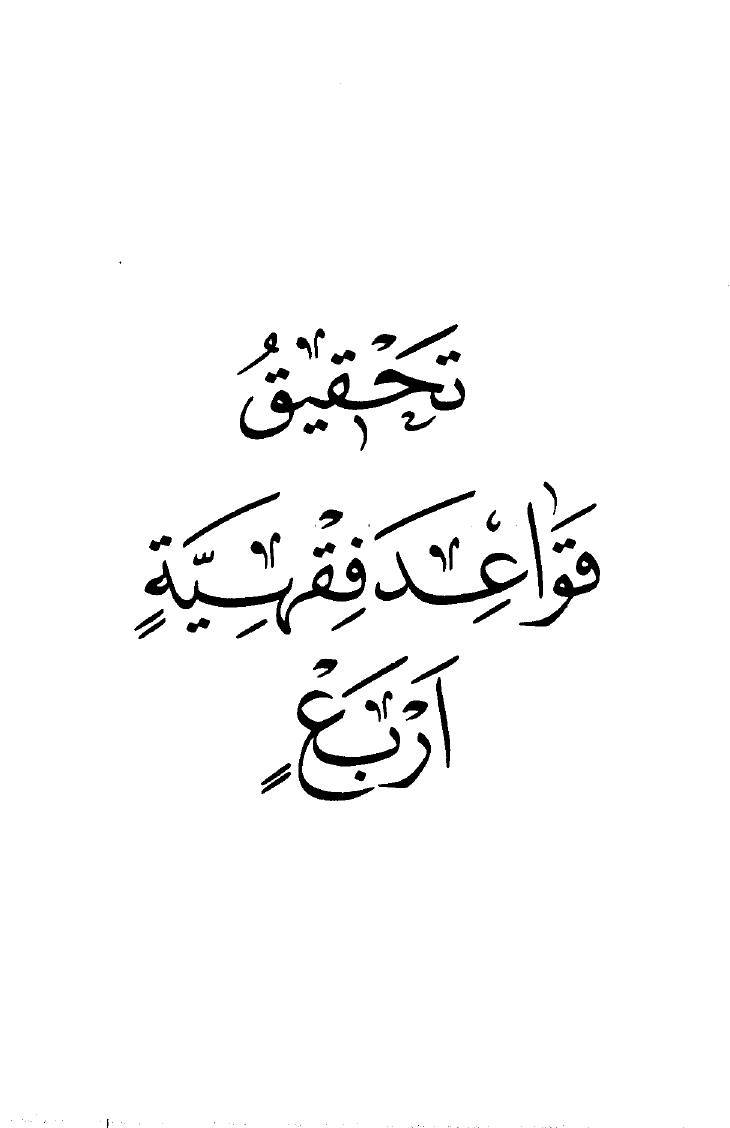 تَحْقِيقُ
قَوَاعِدَ فِقْهِيَّةٍ
أَرْبَعٍ